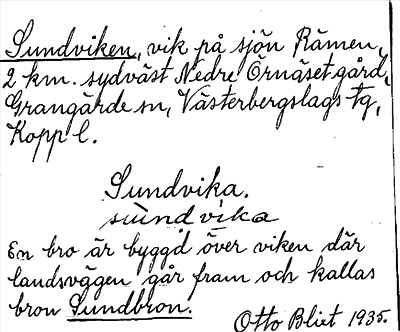 Sundviken, vik på sjön Rämen,
2 km. sydväst Nedre Örnäset gård,
Grangärde sn, Västerbergslags tg,
Kopp l.
Sundvika.
sùndvika
En bro är byggd över viken där
landsvägen går fram och kallas
bron Sundbron.
Otto Blixt 1935.